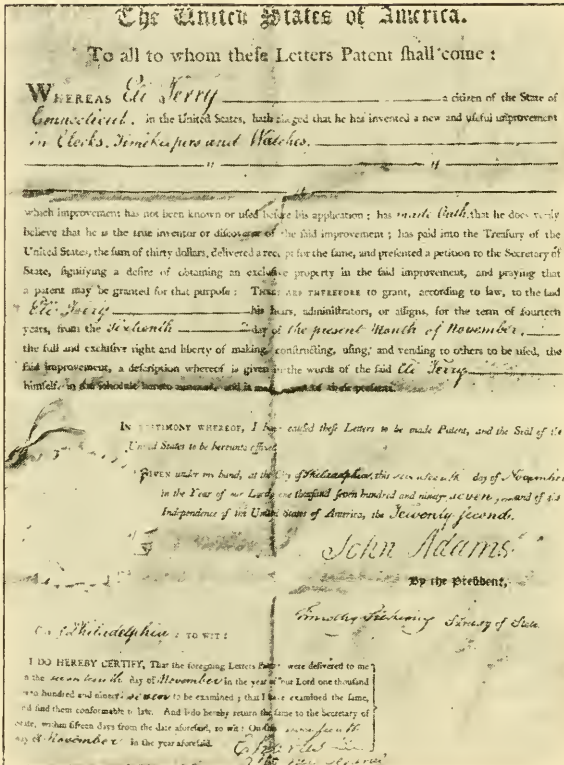 The United States of America.
To all to whom theſe Letters Patent ſhall come :
WHEREAS Eli Terry a citizen of the State of
Connecticut, in the United States, hath alleged that he has invented a new and uſeful improvement
in Clocks, Timekeepers and Watches.
which improvement has not been known or uſed before his application ; has made Oath that he does verily
believe that he is the true inventor or diſcoverer of the ſaid improvement ; has paid into the Treaſury of the
United States, the ſum of thirty dollars, delivered a receipt for the ſame, and preſented a petition to the Secretary of
State, ſignifying a deſire of obtaining an excluſive property in the ſaid improvement, and praying that
a patent may be granted for that purpoſe : THESE ARE THEREFORE to grant, according to law, to the ſaid
Eli Terry his heirs, adminiſtrators, or aſſigns, for the term of fourteen
years, from the Sixteenth day of the present Month of November.
the full and excluſive right and liberty of making, conſtructing, uſing, and vending to others to be uſed, the
ſaid improvement, a deſcription whereof is given in the words of the ſaid Eli Terry
himſelf, in the ſchedule hereto annexed, and is made part of theſe preſents.
IN TESTIMONY WHEREOF, I have cauſed theſe Letters to be made Patent, and the Seal of the
United States to be hereunto affixed
GIVEN under my hand, at the City of Philadelphia, this seventeenth day of November
in the Year of our Lord, one thouſand ſeven hundred and ninety seven, and of the
Independence of the United States of America, the Twenty ſecond.
John Adams
By the Preſident,
Timothy Pickering Secretary of State
City of Philadelphia : TO WIT :
I DO HEREBY CERTIFY, That the foregoing Letters Patent were delivered to me
on the seventeenth day of November in the year of our Lord one thouſand
ſeven hundred and ninety seven to be examined ; that I have examined the ſame,
and find them conformable to law. And I do hereby return the ſame to the Secretary of
State, within fifteen days from the date aforeſaid, to wit : On this seventeenth
day of November in the year aforeſaid.
Charles Lee